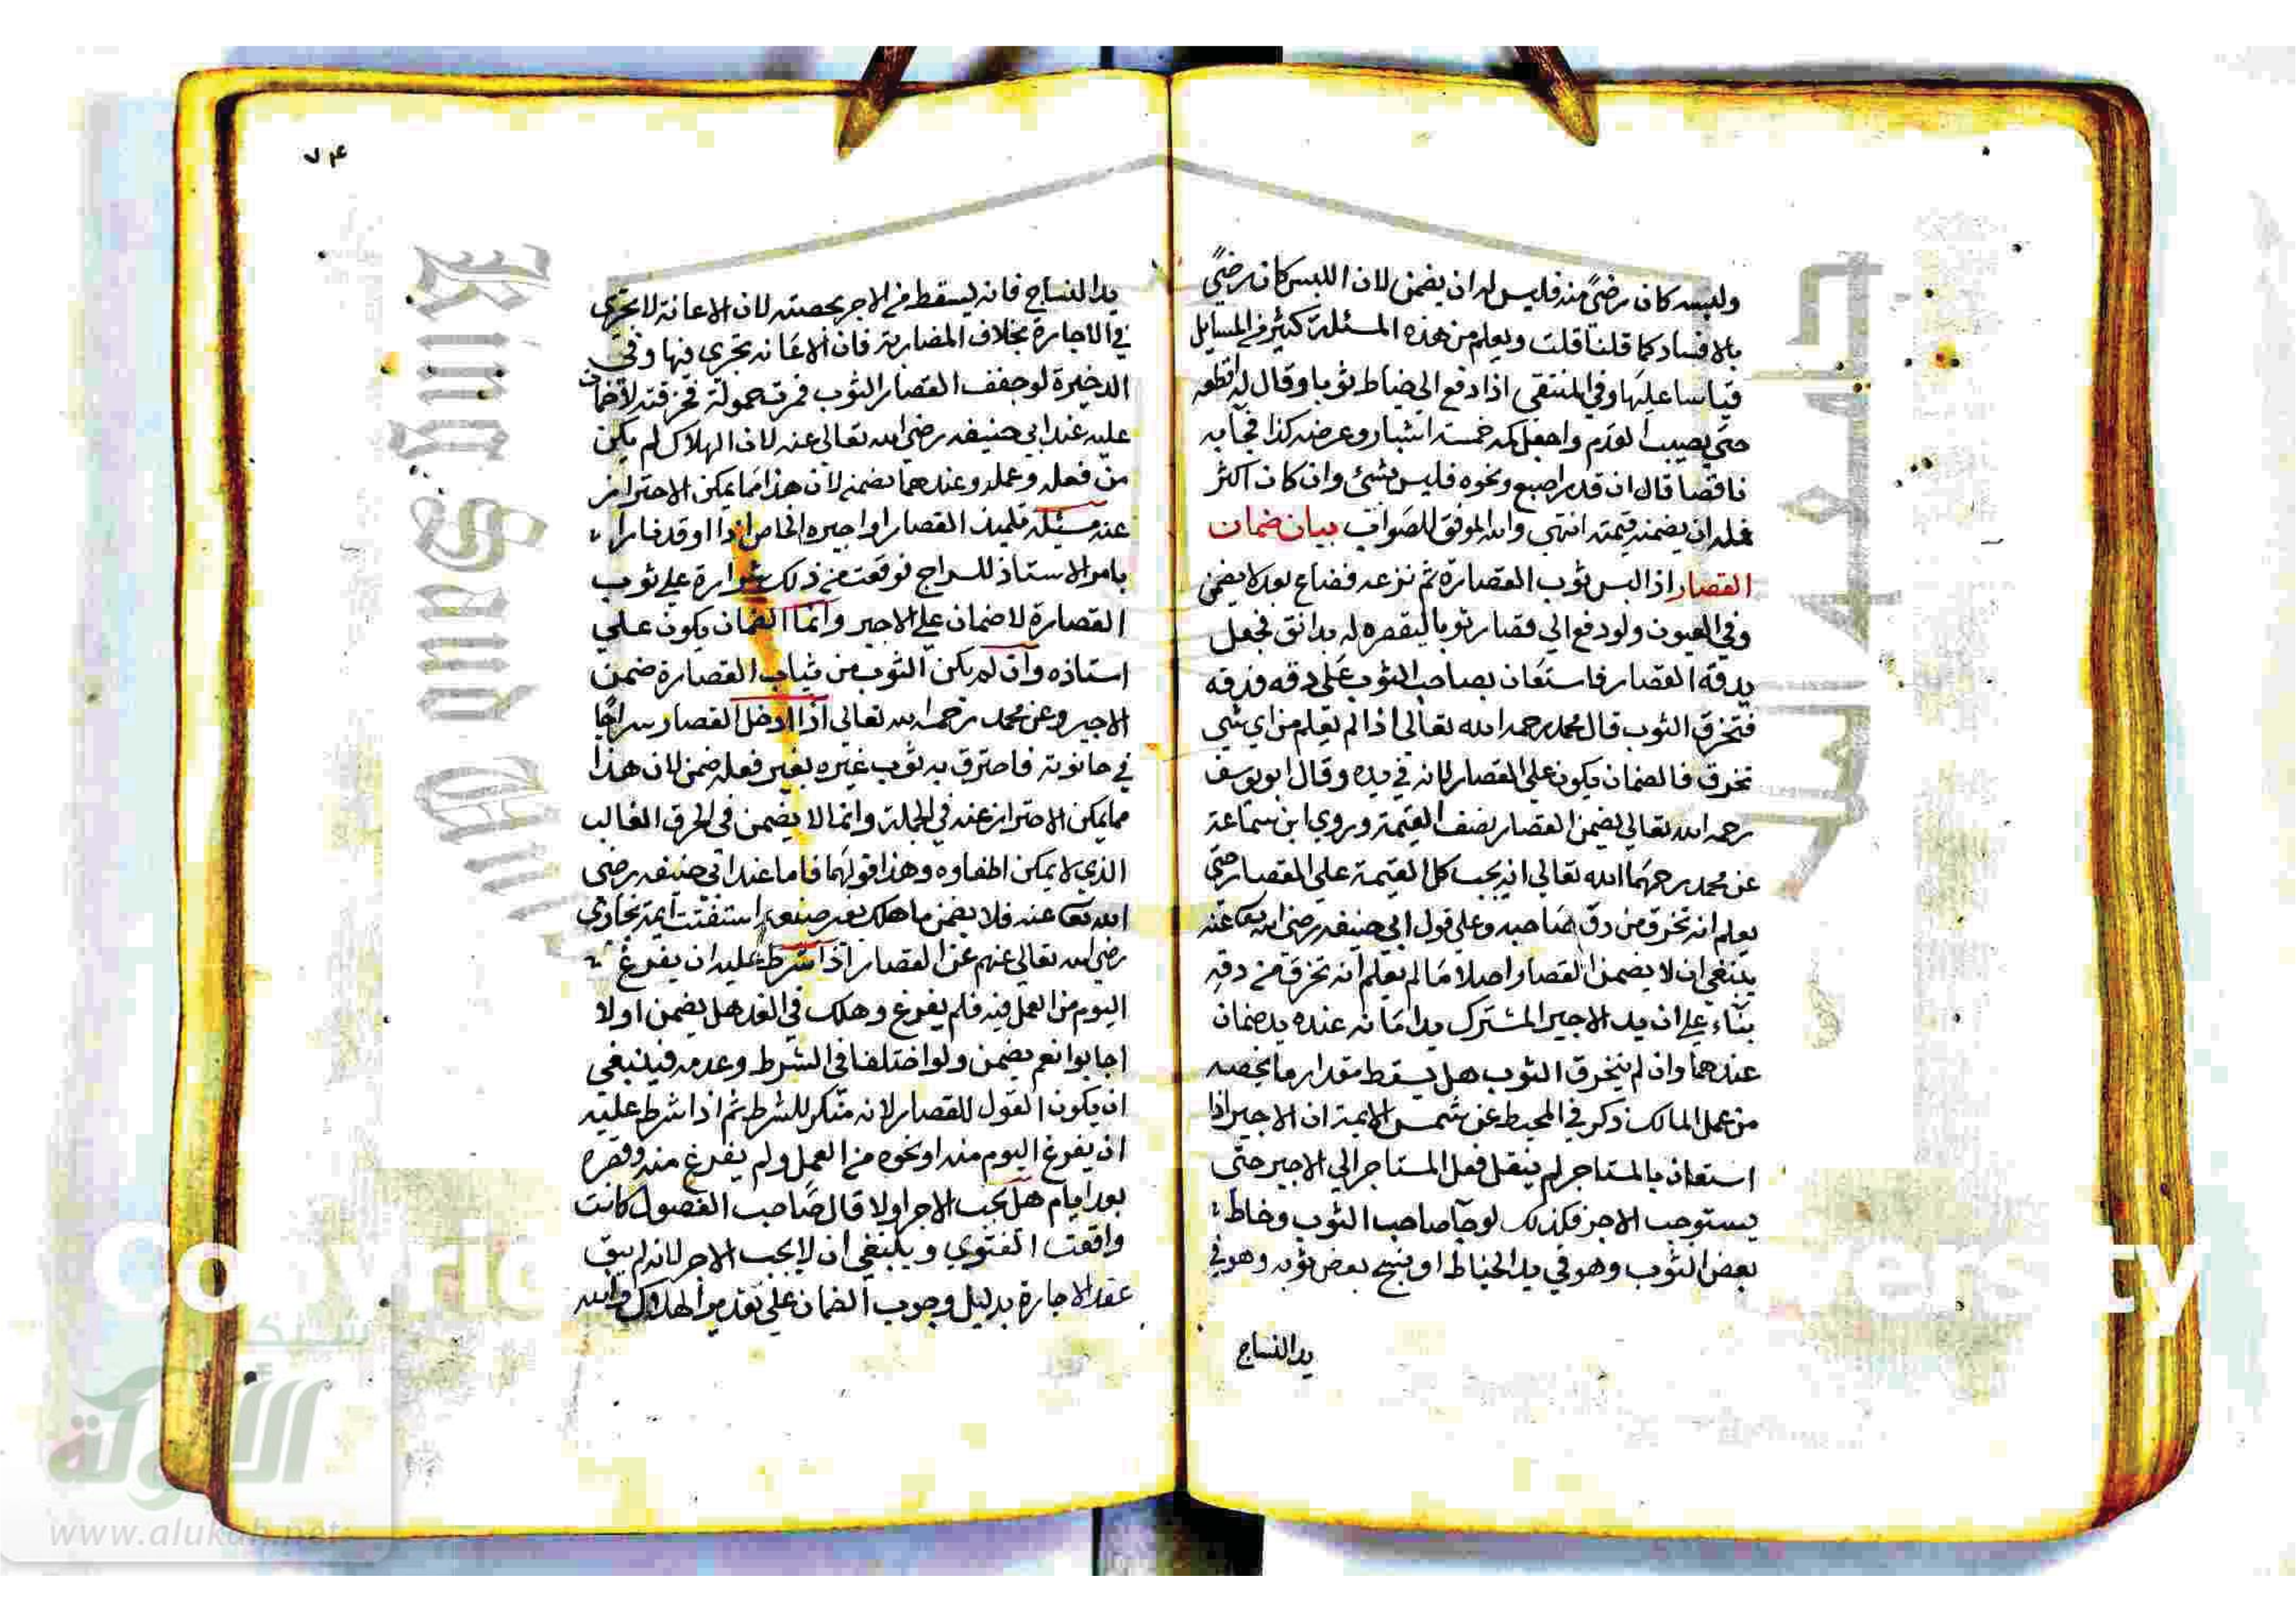 ولبسه كان رضىً منه فليس له ان يضمن لان اللبس كان رضىً
بالافساد كما قلنا قلت ويعلم من هذه المسئلة كثير في المسايل
قياسا عليها وفي المنتقى اذا دفع الى خياط ثوبا وقال له اقطعه
حتى يصيب القدم واجعل كمه خمسة اشبار وعرضه كذا فجآ به
ناقصا قال ان قدر اصبع ونحوه فليس بشئ وان كان اكثر
فله ان يضمنه قيمته انتهى والله الموفق للصواب بيان ضمان
القصار اذا لبس ثوب القصارة ثم نزعه فضاع بعده لا يضمن
وفي العيون ولو دفع الي قصار ثوبا ليقصره له بدانق فجعل
يدقه القصار فاستعان بصاحب الثوب على دقه فدقه
فتخرق الثوب قال محمد رحمه الله تعالى اذا لم يعلم من اي شي
تخرق فالضمان يكون على القصار لانه في يده وقال ابو يوسف
رحمه الله تعالي يضمن القصار نصف القيمة وروي ابن سماعة
عن محمد رحمهما الله تعالي انه يجب كل القيمة علي القصار حتى
يعلم انه تخرق من دق صاحبه وعلي قول ابي حنيفه رضى الله تعا عنه
ينبغي ان لا يضمن القصار اصلا ما لم يعلم انه تخرق من دقه
بناء على ان يد الاجير المشترك يد امانه عنده يد ضمان
عندهما وان لم يتخرق الثوب هل يسقط مقدار ما يخصه
من عمل المالك ذكر في المحيط عن شمس الايمة ان الاجير اذا
استعان بالمستاجر لم ينقل فعل المستاجر الي الاجير حتى
يستوجب الاجر فكذلك لو جآ صاحب الثوب وخاط
بعض الثوب وهو في يد الخياط او نسج بعض ثوبه وهو في
يد النساج
٧٤
يد النساج فانه يسقط من الاجر بحصته لان الاعانة لا تجرى
في الاجارة بخلاف المضاربة فان الاعانه تجري فيها وفي
الدخيرة لو جفف القصار الثوب فمرت حمولة فخرقته لا ضمان
عليه عند ابي حنيفه رضى الله تعالى عنه لان الهلاك لم يكن
من فعله وعمله وعندهما يضمنه لان هذا مما يمكن الاحتراز
عنه مسئلة تلميذ القصار او اجيره الخاص اذا اوقد نارا
بامر الاستاذ للسراج فوقعت من ذلك شرارة على ثوب
القصارة لا ضمان على الاجير وانما الضمان يكون علي
استاذه وان لم يكن الثوب من ثياب القصارة ضمن
الاجير وعن محمد رحمه الله تعالى اذا ادخل القصار سراجا
في حانوته فاحترق به ثوب غيره بغير فعله ضمن لان هذا
مما يمكن الاحتراز عنه في الجملة وانما لا يضمن في الحرق الغالب
الذي لا يمكن اطفاوه وهذا قولهما فاما عند ابي حنيفه رضى
الله تعا عنه فلا يضمن ما هلك بغير صنعه استفتت ايمة بخارى
رضى الله تعالي عنهم عن القصار اذا شرط عليه ان يفرغ
اليوم من العمل فيه فلم يفرغ وهلك في الغد هل يضمن او لا
اجابوا نعم يضمن ولو اختلفا في الشرط وعدمه فينبغي
ان يكون القول للقصار لانه منكر للشرط ثم اذا شرط عليه
ان يفرغ اليوم منه او نحوه من العمل ولم يفرغ منه وقصره
بعد ايام هل يجب الاجر او لا قال صاحب الفصول كانت
واقعت الفتوى وينبغي ان لا يجب الاجر لانه لم يبق
عقد الاجارة بدليل وجوب الضمان على تقدير الهلاك والله
King Saud
جامعة الملك
شبكة
الألوكة
www.alukah.net